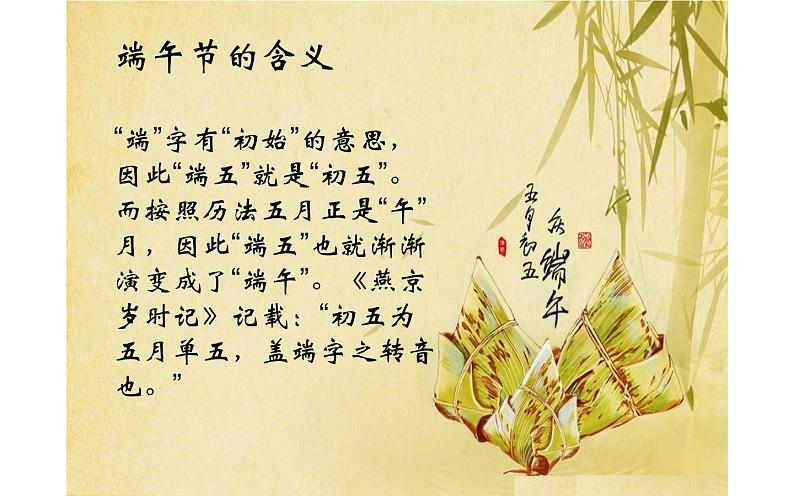 端午节的含义
“端”字有“初始”的意思，
因此“端五”就是“初五”。
而按照历法五月正是“午”
月，因此“端五”也就渐渐
演变成了“端午”。《燕京
岁时记》记载：“初五为
五月单五，盖端字之转音
也。”
五月初五
庆端午